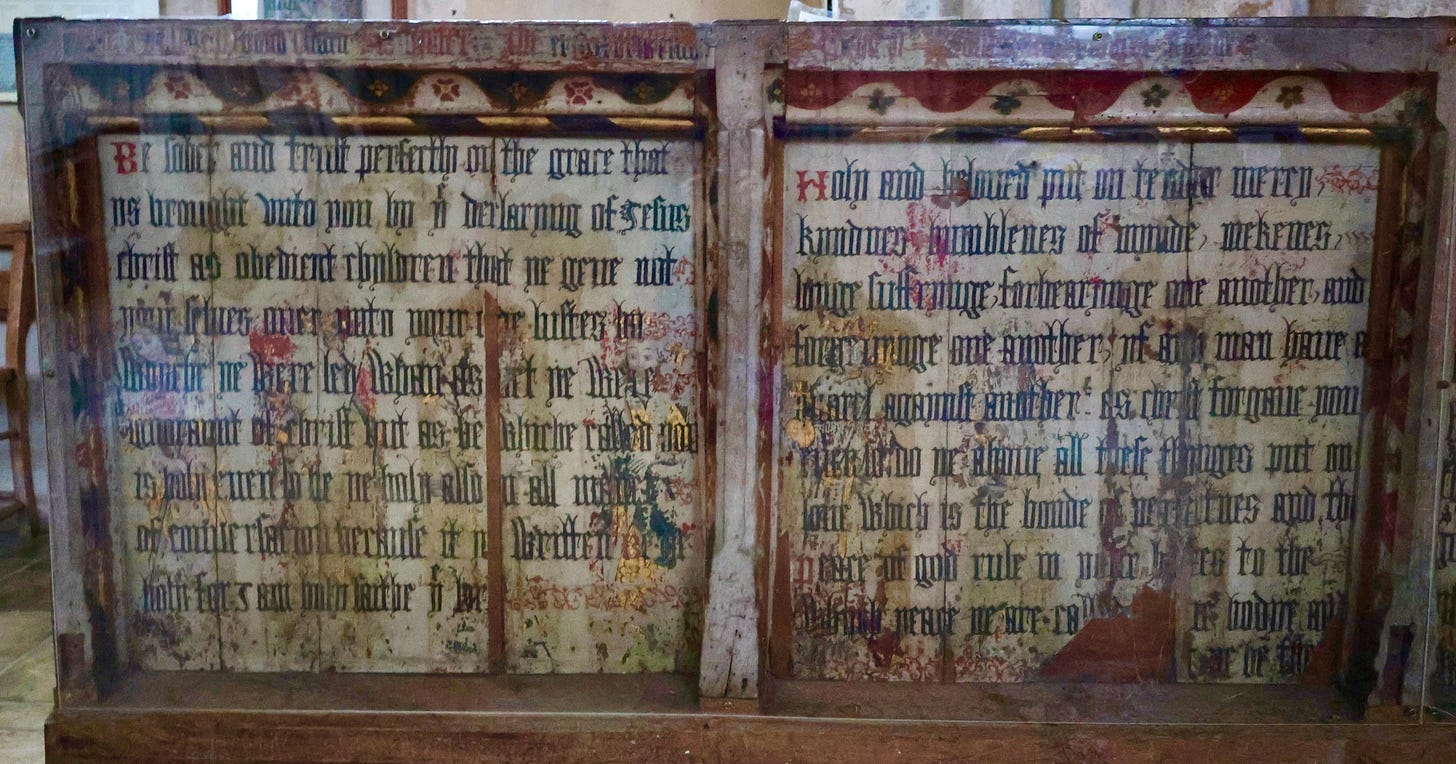 Be sober and trust perfectly on the grace that
ys brought vnto you by yͤ declaryng of Jesus
christ as obedient chyldren that ye geve not
your selves over vnto your lustes by
Whyche ye Were led Whan as yet ye Were
of christ but as he Whiche called you
is holy even so be ye holy also in all maner
of conversation because it is Written Be ye
holy for I am holy saithe yͤ lor
Holy and beloved put on tender mercy,
kyndnes humblenes of mynde, mekenes,
longe suffrynge, forbearynge one another, and
forgevynge one another, yf any man have a
quarel agaynst another: as christ forgave you
even so do ye above all these thynges put on
love Which is the bonde of perfectnes and the
peace of god rule in your hertes to the
Whiche peace ye are ca in one bodye and
se be the